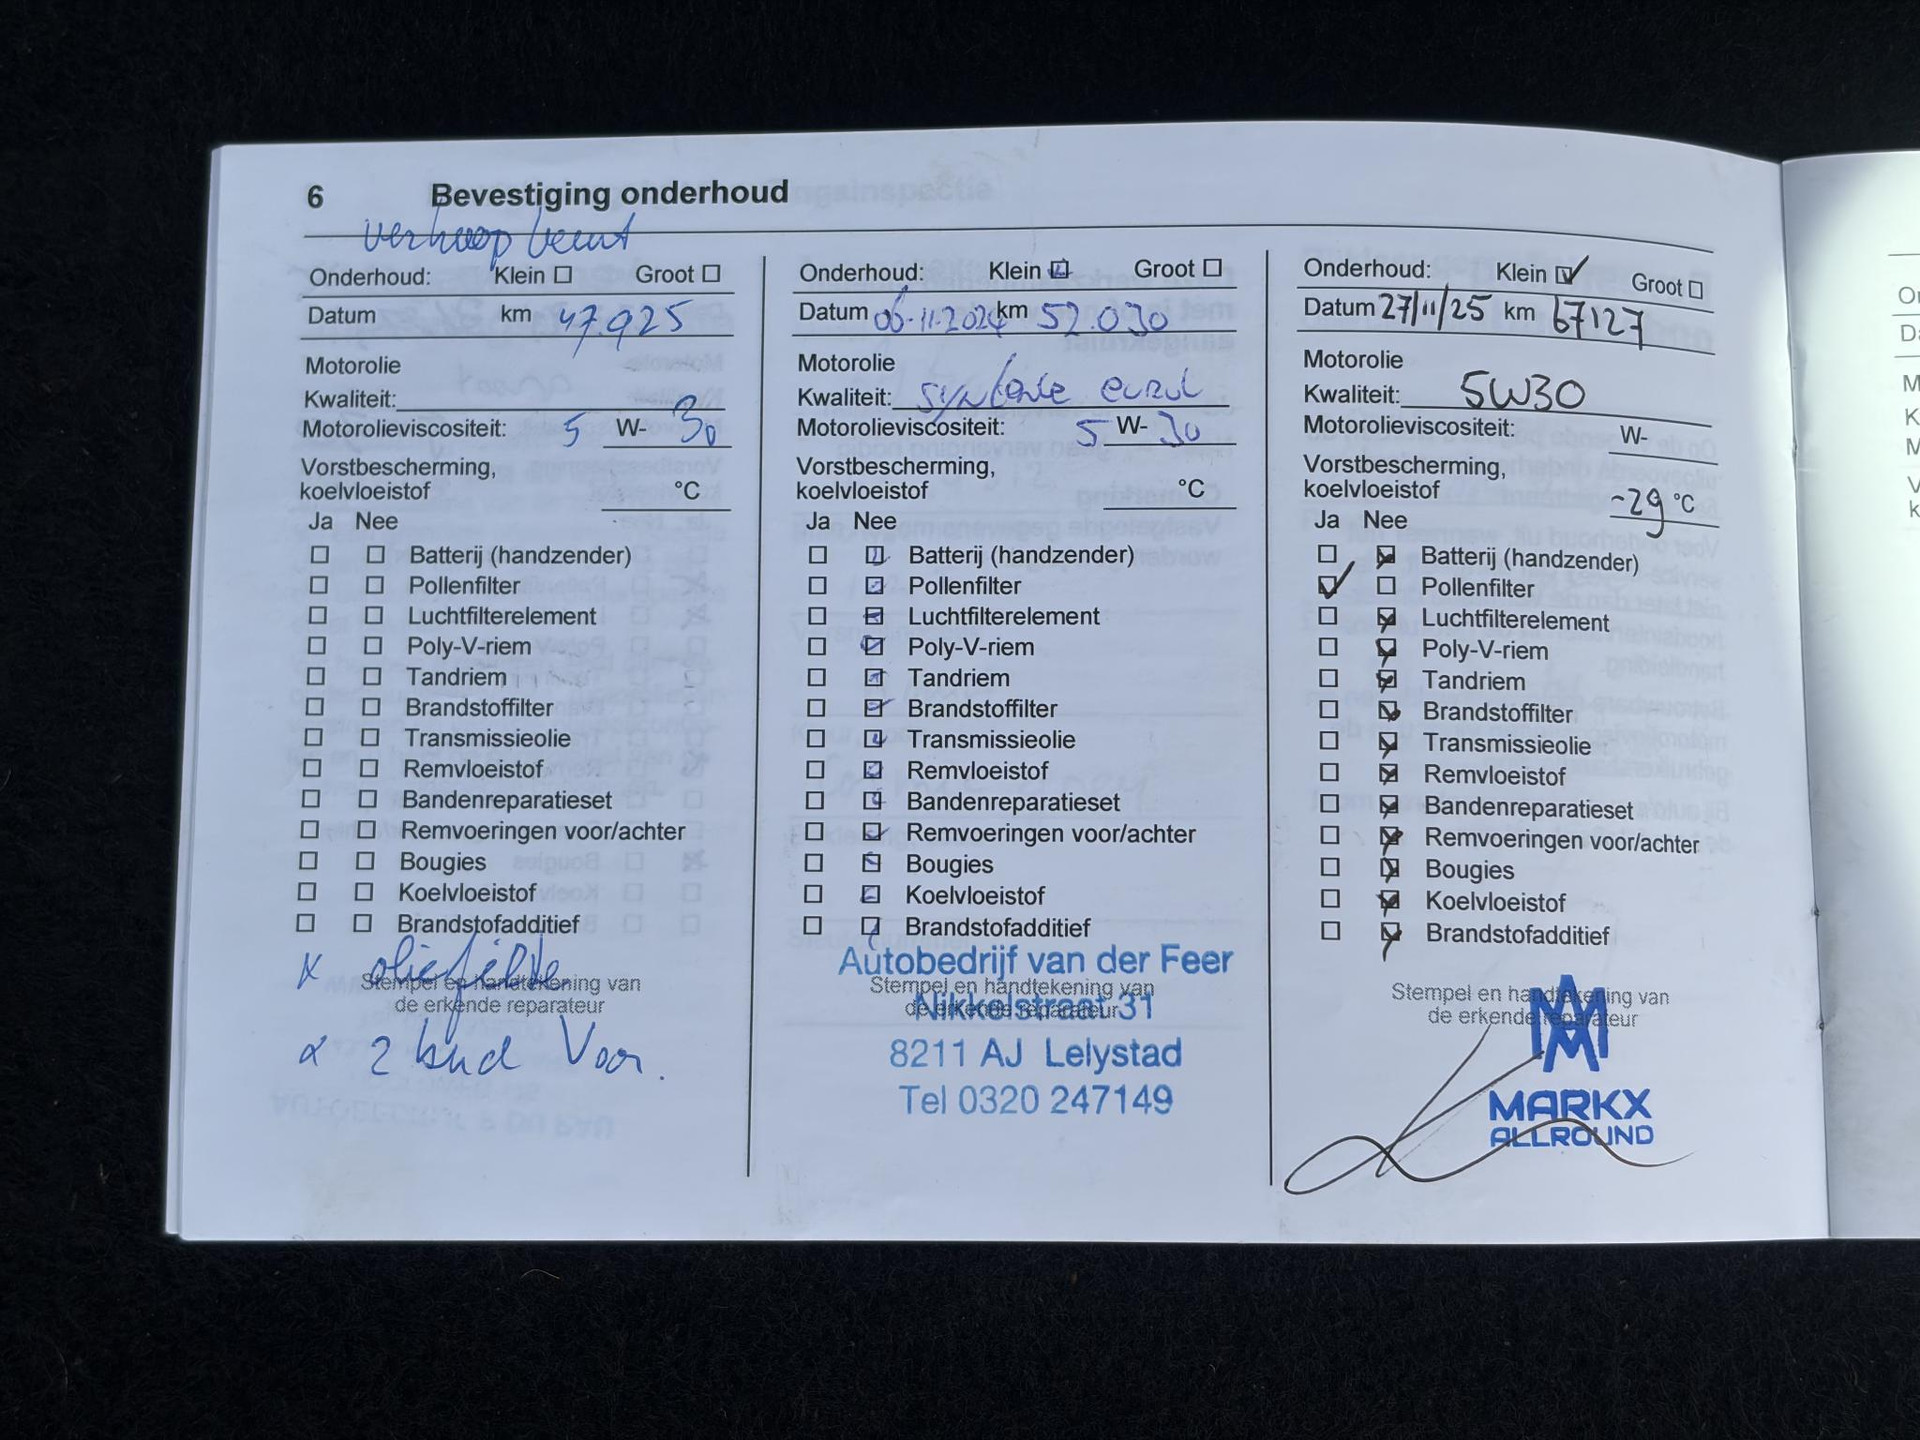 6 Bevestiging onderhoud
verkoop beurt
Onderhoud: Klein Groot
Datum km 47.925
Motorolie
Kwaliteit:
Motorolieviscositeit: 5 W- 30
Vorstbescherming,
koelvloeistof °C
Ja Nee
Batterij (handzender)
Pollenfilter
Luchtfilterelement
Poly-V-riem
Tandriem
Brandstoffilter
Transmissieolie
Remvloeistof
Bandenreparatieset
Remvoeringen voor/achter
Bougies
Koelvloeistof
Brandstofadditief
x olie filter
Stempel en handtekening van
de erkende reparateur
x 2 band Voor.
Onderhoud: Klein Groot
Datum 06-11-2024 km 52.030
Motorolie
Kwaliteit: eurol
Motorolieviscositeit: 5 W- 30
Vorstbescherming,
koelvloeistof °C
Ja Nee
Batterij (handzender)
Pollenfilter
Luchtfilterelement
Poly-V-riem
Tandriem
Brandstoffilter
Transmissieolie
Remvloeistof
Bandenreparatieset
Remvoeringen voor/achter
Bougies
Koelvloeistof
Brandstofadditief
Autobedrijf van der Feer
Stempel en handtekening van
Nikkelstraat 31
de erkende reparateur
8211 AJ Lelystad
Tel 0320 247149
Onderhoud: Klein Groot
Datum 27/11/25 km 67127
Motorolie
Kwaliteit: 5W30
Motorolieviscositeit: W-
Vorstbescherming,
koelvloeistof -29 °C
Ja Nee
Batterij (handzender)
Pollenfilter
Luchtfilterelement
Poly-V-riem
Tandriem
Brandstoffilter
Transmissieolie
Remvloeistof
Bandenreparatieset
Remvoeringen voor/achter
Bougies
Koelvloeistof
Brandstofadditief
Stempel en handtekening van
de erkende reparateur
MARKX
ALLROUND